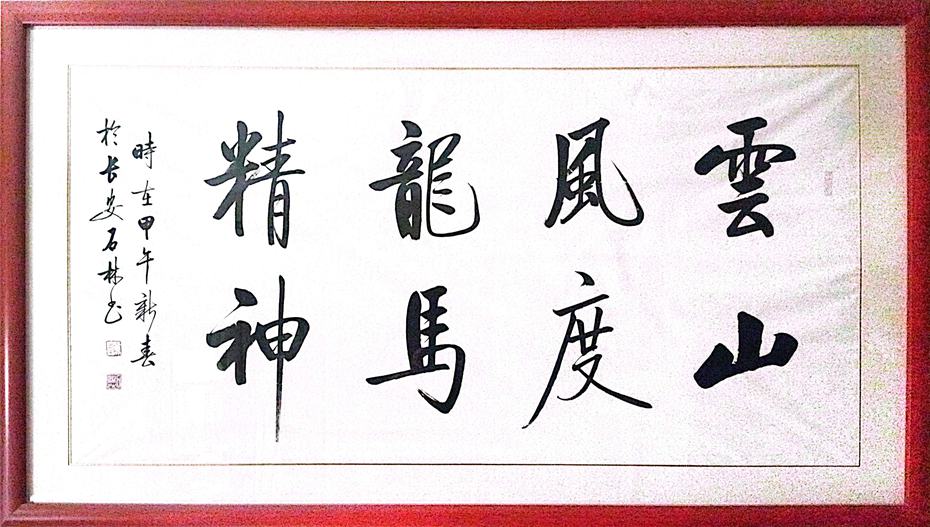 雲山
風度
龍馬
精神
時在甲午新春
於長安石林書